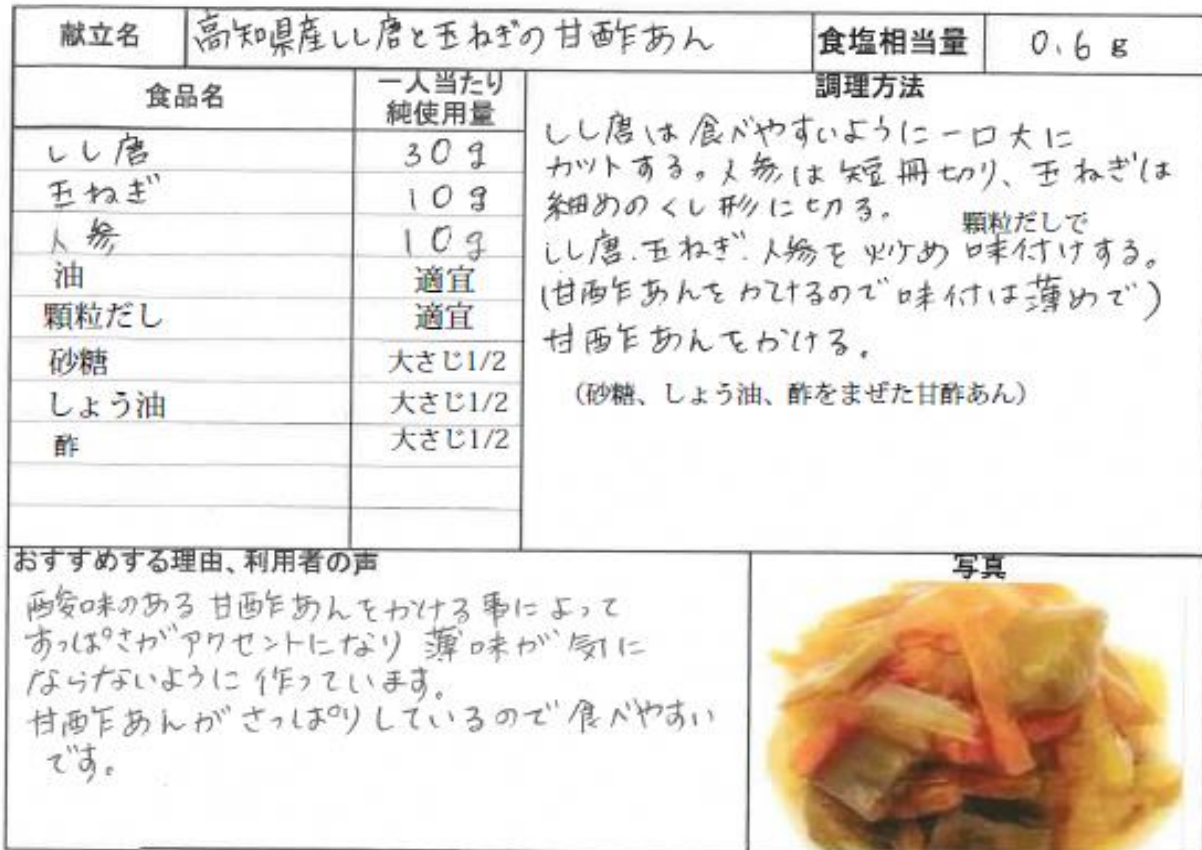 献立名 高知県産しし唐と玉ねぎの甘酢あん 食塩相当量 0.6 g
食品名 一人当たり純使用量
しし唐 30g
玉ねぎ 10g
人参 10g
油 適宜
顆粒だし 適宜
砂糖 大さじ1/2
しょう油 大さじ1/2
酢 大さじ1/2
調理方法
しし唐は食べやすいように一口大に
カットする。人参は短冊切り、玉ねぎは
細めのくし形に切る。
顆粒だしで
しし唐.玉ねぎ.人参を炒め 味付けする。
(甘酢あんをかけるので味付は薄めで)
甘酢あんをかける。
(砂糖、しょう油、酢をまぜた甘酢あん)
おすすめする理由、利用者の声
酸味のある甘酢あんをかける事によって
すっぱさがアクセントになり 薄味が気に
ならないように作っています。
甘酢あんがさっぱりしているので食べやすい
です。
写真